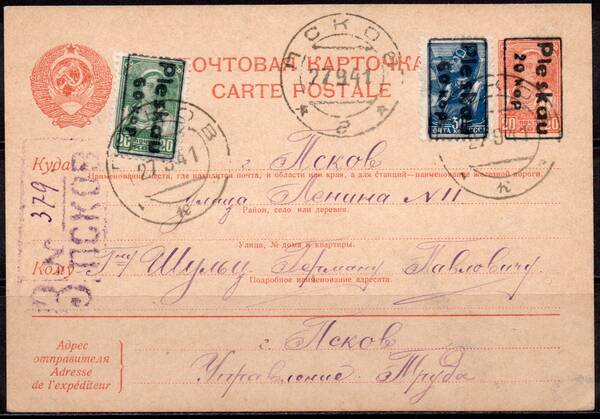 ПОЧТОВАЯ КАРТОЧКА
CARTE POSTALE
ПСКОВ
27.9.41
г
Pleskau
60 кор
20 20
ПСКОВ
27.9.41
к
Pleskau
60 кор
30
ПОЧТА
Pleskau
20 кор
20 20
27.9.41
к
З №379
ПСКОВ
Куда г. Псков
Наименование места, где находится почта, и области или края, а для станций—наименование железной дороги.
улица Ленина №11
Район, село или деревня.
Улица, № дома и квартиры.
Кому Гну Шульц Герману Павловичу
Подробное наименование адресата.
г. Псков
Управление Труда
Адрес
отправителя
Adresse
de l'expéditeur